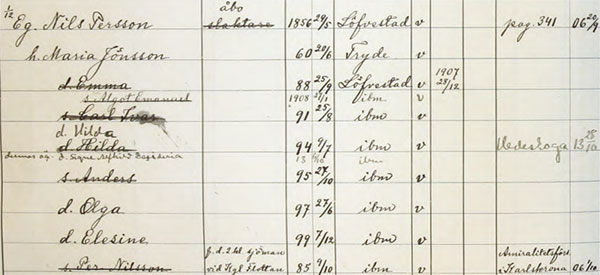 1/12 Eg. Nils Persson åbo slaktare 1856 29/5 Löfvestad v pag. 341 06 20/9
h. Maria Jönsson 60 20/6 Tryde v
d. Emma 88 25/9 Löfvestad v 1907 28/12
s. Algot Emanuel 1908 21/1 ibm v
s. Carl Ivar 91 25/8 ibm v
d. Hilda
d. Hilda 94 9/7 ibm v Hedeskoga 13 28/10
d. Signe 13 ibm
s. Anders 95 27/10 ibm v
d. Olga 97 27/6 ibm v
d. Elesine 99 7/12 ibm v
s. Per Nilsson f. d. 2 kl. sjöman vid Kgl Flottan 85 9/10 ibm v Amiralitetsförs i Karlskrona 06